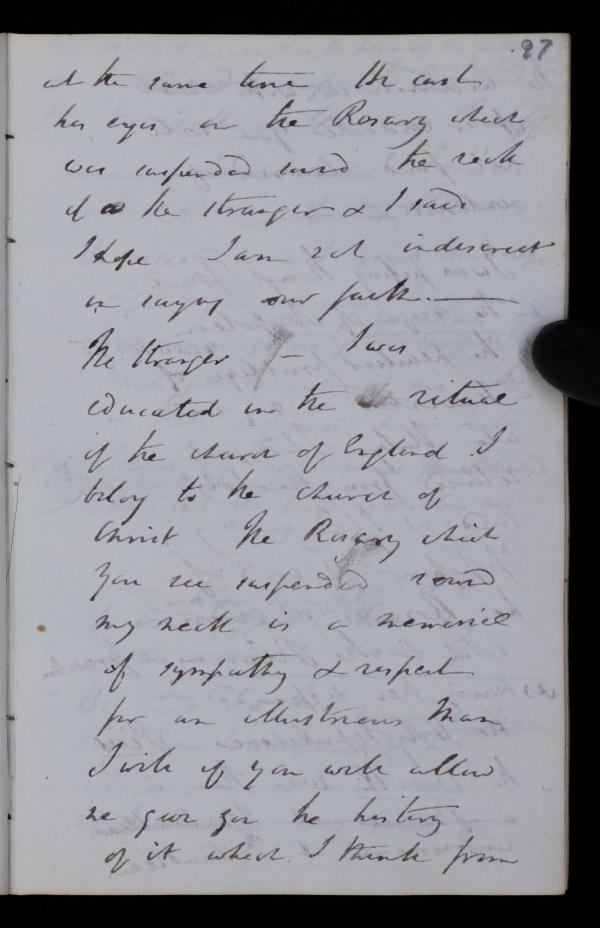 97
at the same time He cast
his eyes on the Rosary which
was suspended round the neck
of the stranger & I said
I hope I am not indiscreet
in saying our faith. —
The Stranger — I was
educated in the ritual
of the church of England I
belong to the church of
Christ The Rosary which
you see suspended round
my neck is a memorial
of sympathy & respect
for an illustrious Man
I will if you will allow
me give you the history
of it which I think from